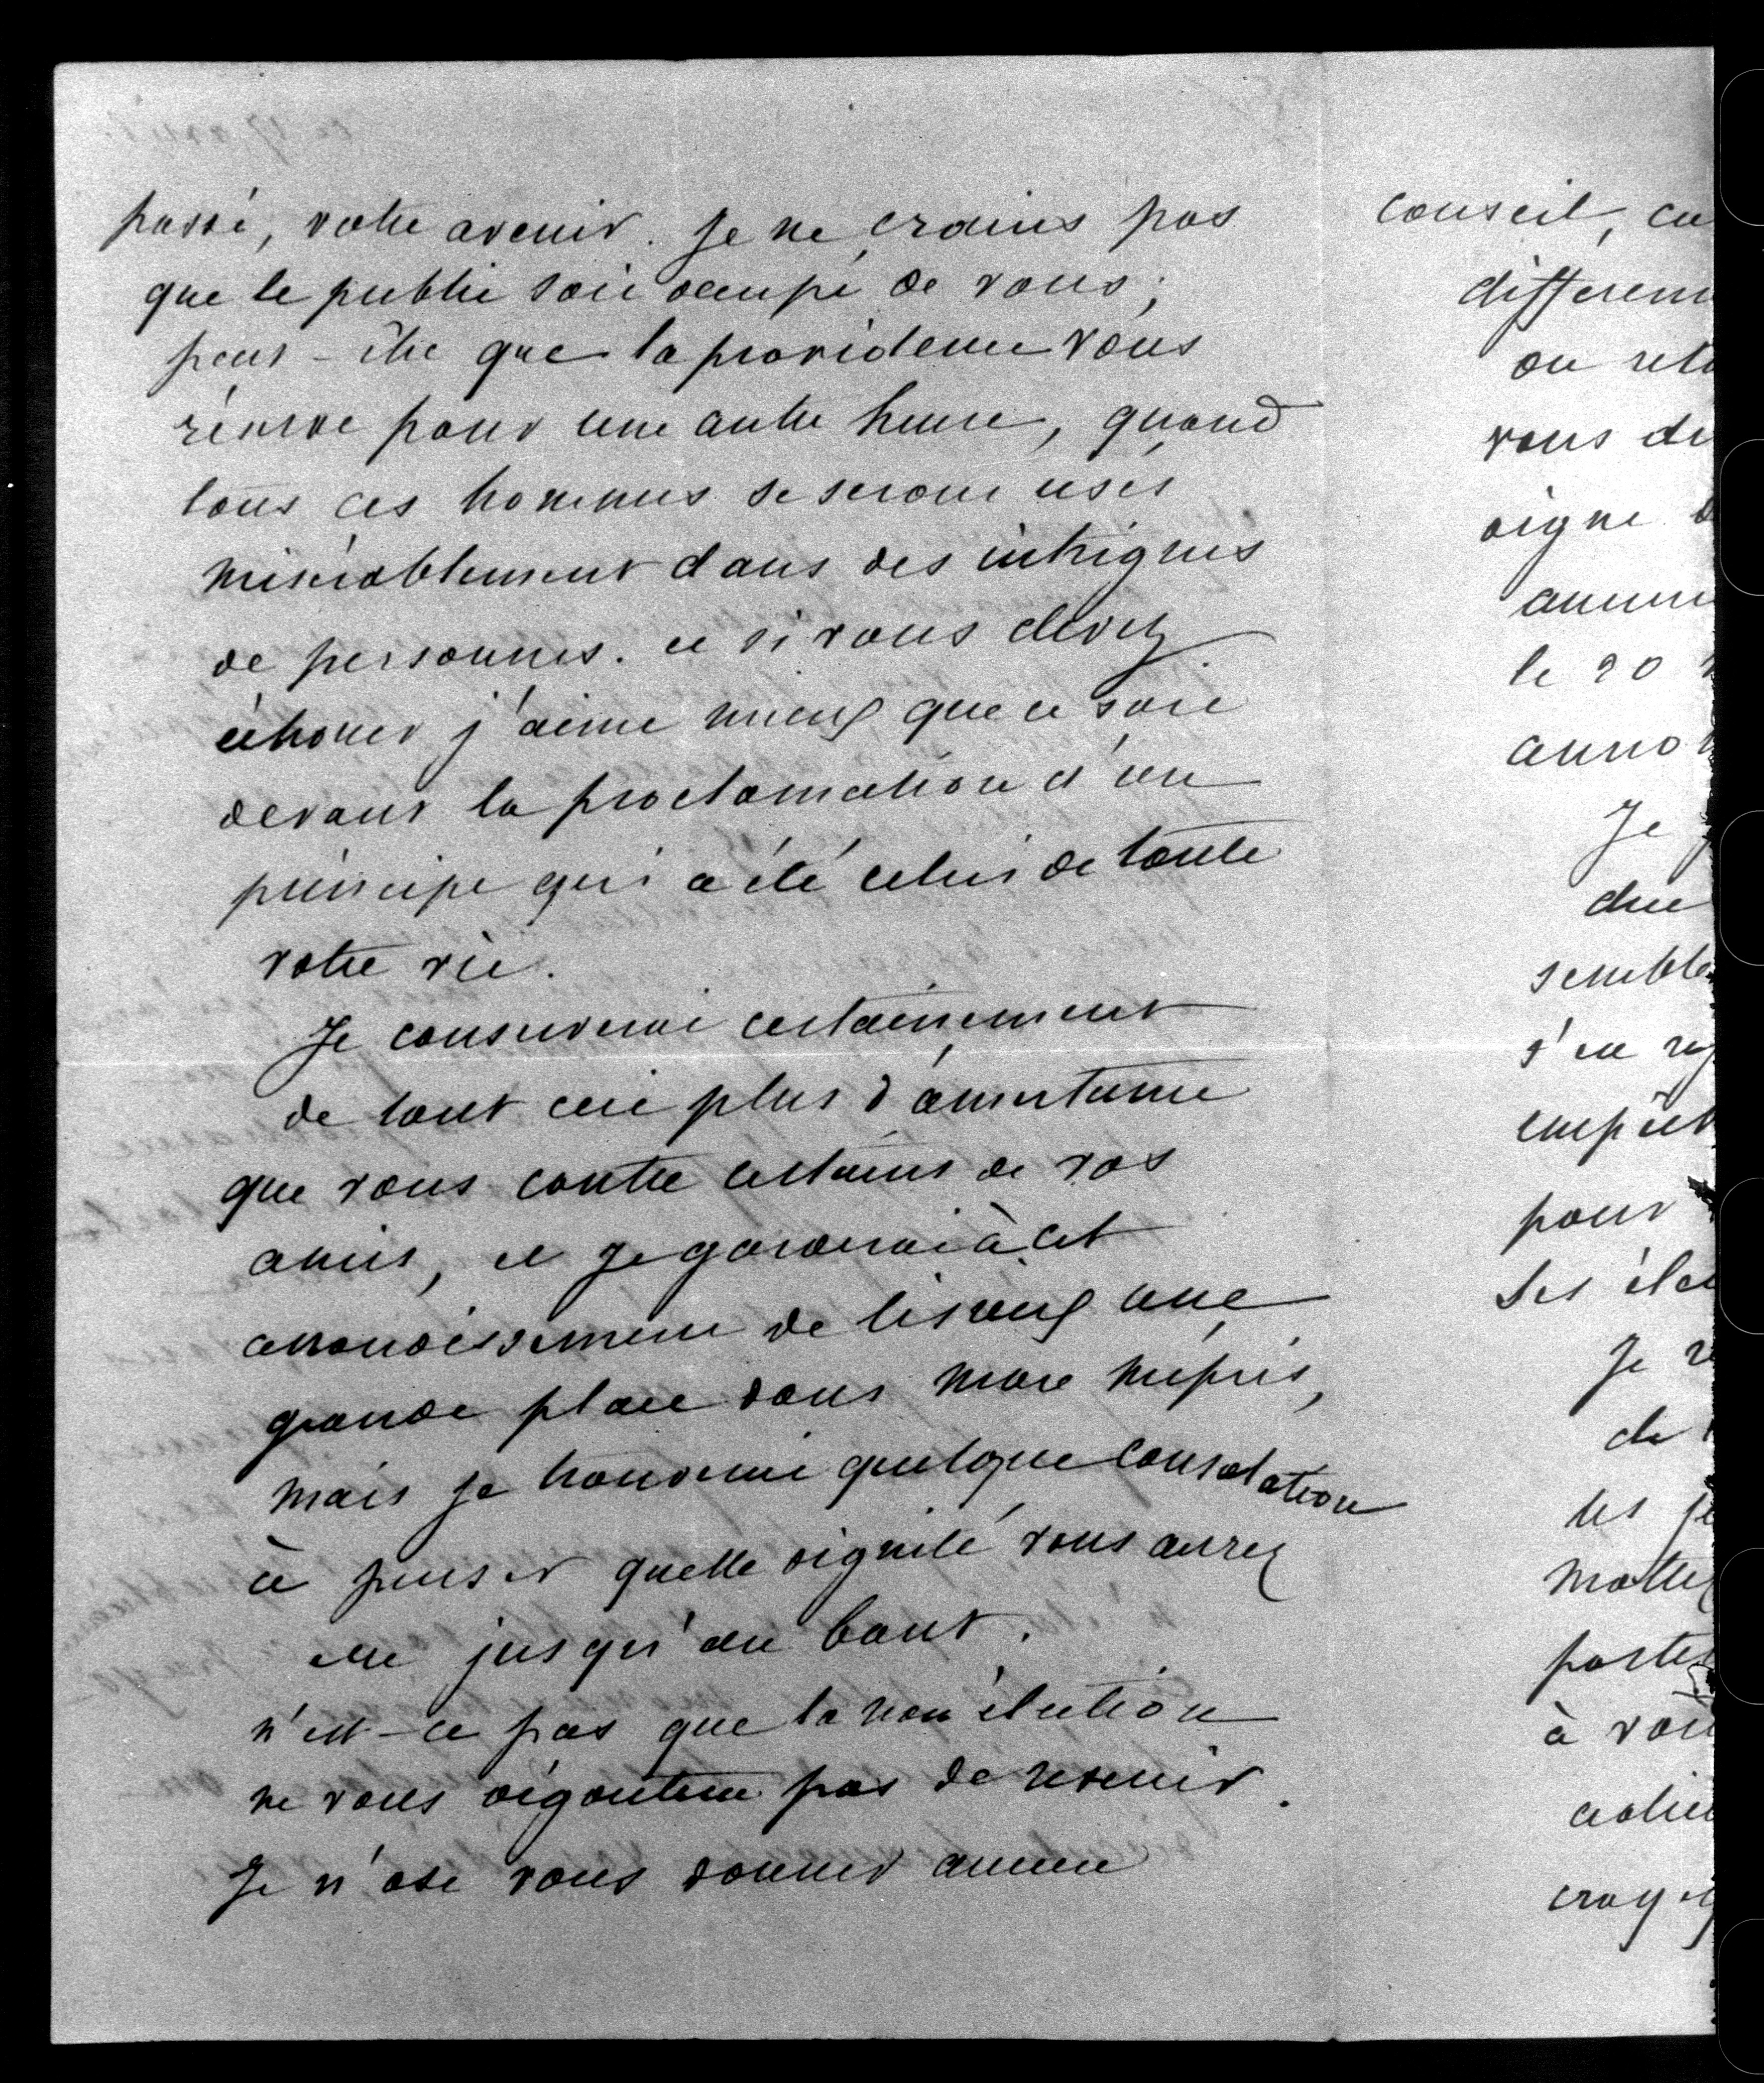 passé, votre avenir. Je ne crains pas
que le public soit occupé de vous ;
peut-être que la providence vous
réserve pour une autre heure, quand
tous ces hommes se seront usés
misérablement dans des intrigues
de personnes. et si vous devez
échouer j'aime mieux que ce soit
devant la proclamation d'un
principe qui a été celui de toute
votre vie.
Je conserverai certainement
de tout ceci plus d'amertume
que vous contre certains de vos
amis, et je garderai à cet
arrondissement de Lisieux une
grande place dans mon mépris,
mais je trouverai quelque consolation
à penser quelle dignité vous aurez
eue jusqu'au bout.
n'est-ce pas que la non élection
ne vous dégoutera pas de revenir.
Je n'ose vous donner aucun
conseil,
ou
vous
le 20
Je
pour
Je
à